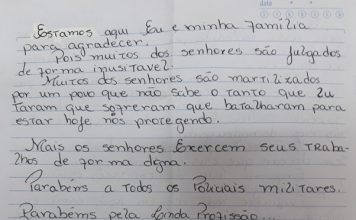 Estamos aqui Eu e minha familia
para agradecer.
Pois muitos dos senhores são julgados
de forma inusitavel.
Muitos dos senhores são martilizados
por um povo que não sabe o tanto que lu
taram que sofreram que batalharam para
estar hoje nos protegendo.
Mais os senhores Exercem seus traba-
lhos de forma digna.
Parabéns a todos os Policiais militares.
Parabéns pela linda Profissão...